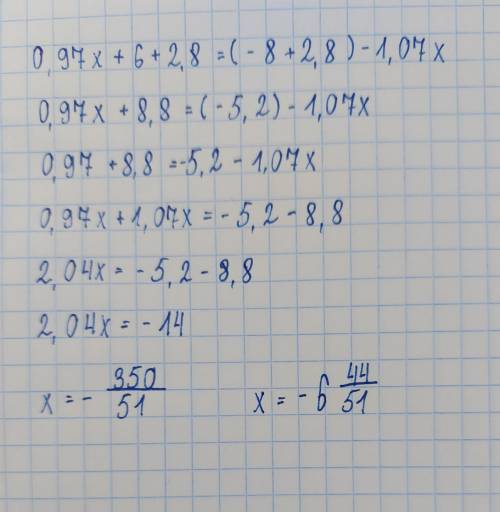 0,97x + 6 + 2,8 = (- 8 + 2,8) - 1,07x
0,97x + 8,8 = (- 5,2) - 1,07x
0,97 + 8,8 = -5,2 - 1,07x
0,97x + 1,07x = - 5,2 - 8,8
2,04x = - 5,2 - 8,8
2,04x = - 14
x = - 350/51 x = - 6 44/51